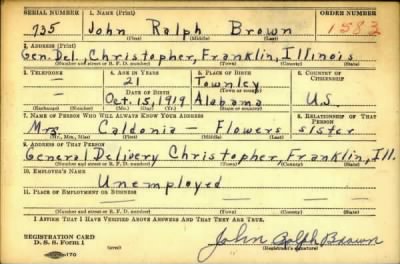 SERIAL NUMBER 1. NAME (Print) ORDER NUMBER
735 John Ralph Brown 1583
(First) (Middle) (Last)
2. ADDRESS (Print)
Gen. Del., Christopher, Franklin, Illinois
(Number and street or R. F. D. number) (Town) (County) (State)
3. TELEPHONE 4. AGE IN YEARS 5. PLACE OF BIRTH 6. COUNTRY OF CITIZENSHIP
21 Townley
DATE OF BIRTH (Town or county)
— Oct. 15, 1919 Alabama U.S.
(Exchange) (Number) (Mo.) (Day) (Yr.) (State or country)
7. NAME OF PERSON WHO WILL ALWAYS KNOW YOUR ADDRESS 8. RELATIONSHIP OF THAT PERSON
Mrs — Flowers sister
(Mr., Mrs., Miss) (First) (Middle) (Last)
9. ADDRESS OF THAT PERSON
General Delivery Christopher, Franklin, Ill.
(Number and street or R. F. D. number) (Town) (County) (State)
10. EMPLOYER'S NAME
Unemployed
11. PLACE OF EMPLOYMENT OR BUSINESS
(Number and street or R. F. D. number) (Town) (County) (State)
I AFFIRM THAT I HAVE VERIFIED ABOVE ANSWERS AND THAT THEY ARE TRUE.
REGISTRATION CARD
D. S. S. Form 1 John Ralph Brown
(Registrant's signature)